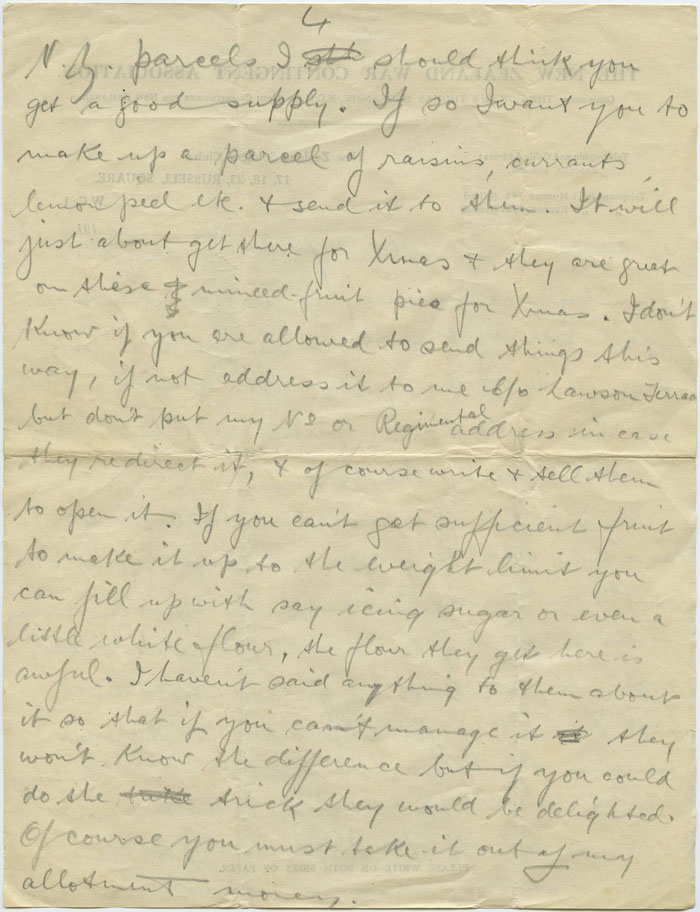 4
N.Z. parcels I should think you
get a good supply. If so I want you to
make up a parcel of raisins, currants,
lemon peel etc. & send it to them. It will
just about get there for Xmas & they are great
on these minced-fruit pies for Xmas. I don't
know if you are allowed to send things this
way, if not address it to me c/o Lawson Terrace
but don't put my No or Regimental address in case
they redirect it, & of course write & tell them
to open it. If you can't get sufficient fruit
to make it up to the weight limit you
can fill up with say icing sugar or even a
little white flour, the flour they get here is
awful. I haven't said anything to them about
it so that if you can't manage it they
won't know the difference but if you could
do the trick they would be delighted.
Of course you must take it out of my
allotment money.